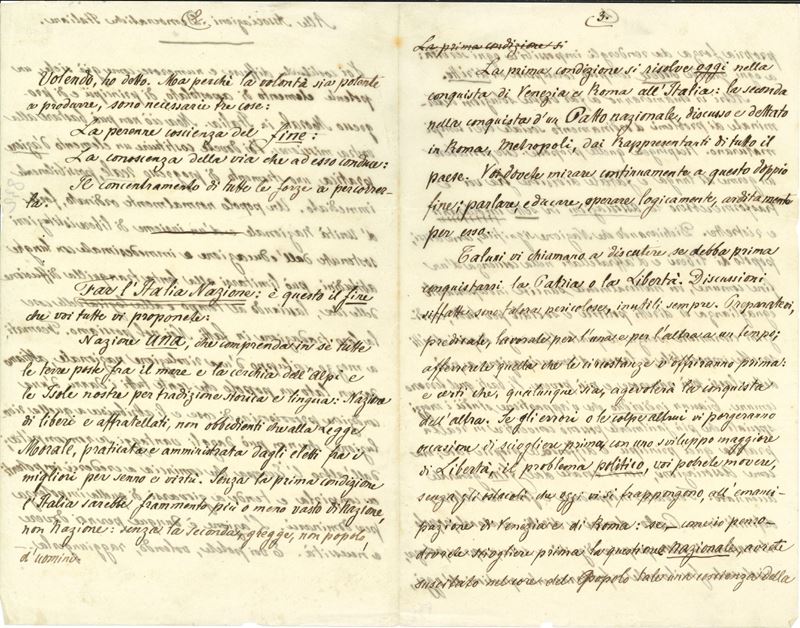 Volendo, ho detto. Ma perchè la volontà sia potente
a produrre, sono necessarie tre cose:
La perenne coscienza del fine:
La conoscenza della via che ad esso conduce:
Il concentramento di tutte le forze a percorrer-
la.
Far l'Italia Nazione: è questo il fine
che voi tutti vi proponete:
Nazione UNA, che comprenda in sè tutte
le terre poste fra il mare e la cerchia dell'Alpi e
le Isole nostre per tradizione storica e lingua: Nazione
di liberi e affratellati, non obbedienti che alla Legge
Morale, praticata e amministrata dagli eletti fra i
migliori per senno e virtù. Senza la prima condizione
l'Italia sarebbe frammento più o meno vasto di Nazione,
non Nazione: senza la seconda, gregge, non popolo
d'uomini.
3.
La prima condizione si
La prima condizione si risolve oggi nella
conquista di Venezia e Roma all'Italia: la seconda
nella conquista d'un Patto nazionale, discusso e dettato
in Roma, Metropoli, dai Rappresentanti di tutto il
paese. Voi dovete mirare continuamente a questo doppio
fine; parlare, educare, operare logicamente, arditamente
per esso.
Taluni vi chiamano a discutere se debba prima
conquistarsi la Patria o la Libertà. Discussioni
siffatte sono talora pericolose, inutili sempre. Preparatevi,
predicate, lavorate per l'una e per l'altra a un tempo;
afferrerete quella che le circostanze v'offriranno prima:
e certi che, qualunque sia, agevolerà la conquista
dell'altra. Se gli errori o le colpe altrui vi porgeranno
occasione di sciogliere prima, con uno sviluppo maggiore
di Libertà, il problema politico, voi potrete movere,
senza gli ostacoli che oggi vi si frappongono, all'emanci-
pazione di Venezia e di Roma: se,
dovrete sciogliere prima la questione Nazionale, avrete
suscitato nel core del Popolo tale una coscienza della